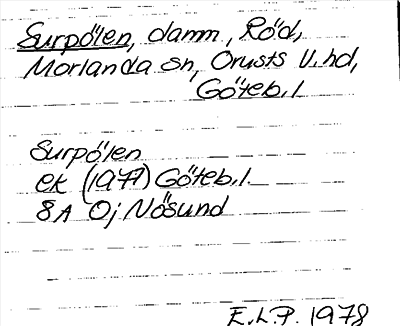 Surpölen, damm, Röd,
Morlanda sn, Orusts V. hd,
Göteb. l.
Surpölen
ek (1977) Göteb. l.
8A Oj Nösund
E.L.P. 1978